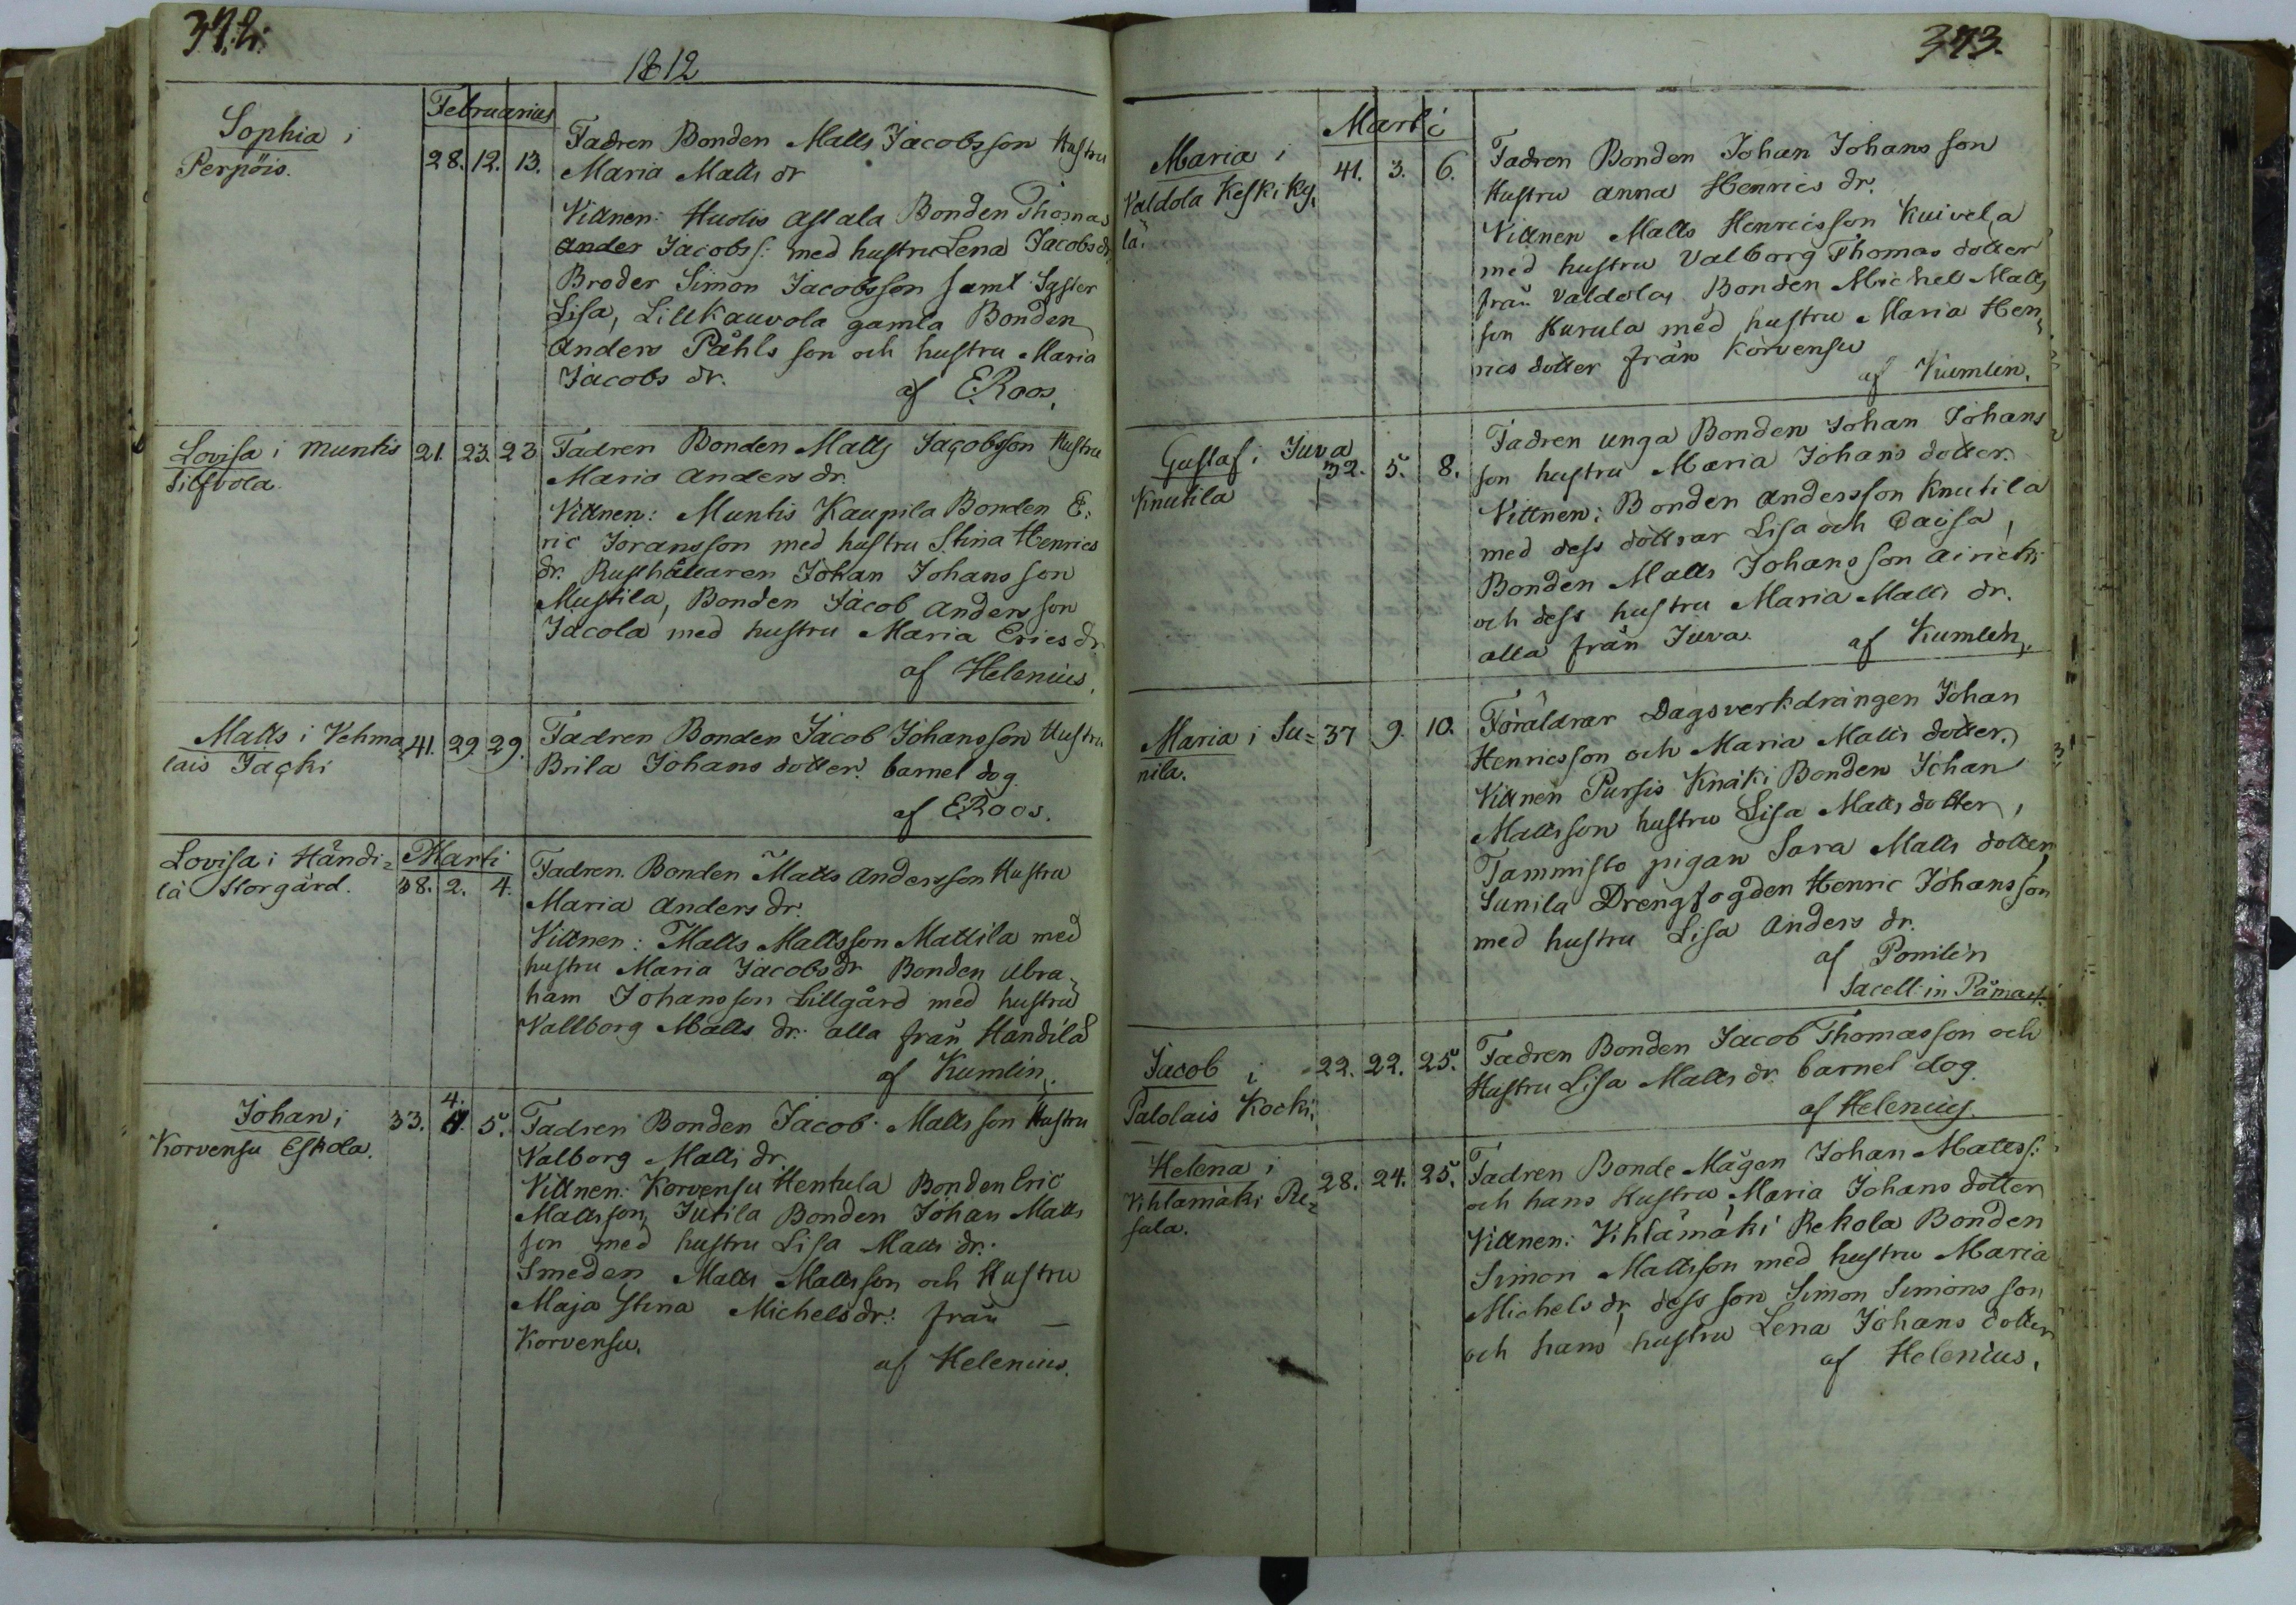 372.
1812
Februarius
Sophia i
Perpöis.
28. 12. 13.
Fadren Bonden Matts Jacobsson Hustru
Maria Matts dr
Vittnen: Huolis astala Bonden Thomas
Ander Jacobss: med hustru Lena Jacobs dr
Broder Simon Jacobsson samt Syster
Lisa, Lillkauvola gamla Bonden
Anders Påhls son och hustru Maria
Jacobs dr.
af E. Roos.
Lovisa i Muntis
Silfvola.
21. 23. 23
Fadren Bonden Matts Jacobsson Hustru
Maria Anders dr.
Vittnen: Muntis Kaupila Bonden E:
ric Joransson med hustru Stina Henrics
dr. Rusthållaren Johan Johansson
Mustila, Bonden Jacob Andersson
Jacola med hustru Maria Erics dr.
af Helenius.
Matts i Vehma
lais Jacki
41. 29. 29.
Fadren Bonden Jacob Johansson Hustru
Brita Johans dotter. barnet dog
af E. Roos.
Lovisa i Händi=
lä Storgård.
Marti
38. 2. 4.
Fadren Bonden Matts Andersson Hustru
Maria Anders dr.
Vittnen: Matts Mattsson Mattila med
hustru Maria Jacobs dr Bonden Abra=
ham Johansson Lillgård med hustru
Vallborg Matts dr: alla från Händilä
af Kumlin.
Johan i
Korvensu Eskola.
4.
33. 4. 5.
Fadren Bonden Jacob Matts son Hustru
Valborg Matts dr.
Vittnen: Korvensu Hentula Bonden Eric
Mattsson, Jutila Bonden Johan Matts
son med hustru Lisa Matts dr:
Smeden Matts Mattsson och Hustru
Maja Stina Michels dr: från —
Korvensu.
af Helenius.
373.
Marti
Maria i
Valdola Keskiky,
lä.
41. 3. 6.
Fadren Bonden Johan Johansson
Hustru Anna Henrics dr.
Vittnen Matts Henricsson Kuivela
med hustru Valborg Thomas dotter
från Valdola, Bonden Michel Matts
son Kurula med hustru Maria Hen=
rics dotter från Korvensu
af Kumlin.
Gustaf i Juva
Knutila
32. 5. 8.
Fadren unga Bonden Johan Johans
son hustru Maria Johans dotter.
Vittnen: Bonden Andersson Knutila
med dess döttrar Lisa och Caisa,
Bonden Matts Johansson Airicki
och dess hustru Maria Matts dr.
alla från Juva.
af Kumlin.
Maria i Su=
nila.
37 9. 10.
Föräldrar Dagsverkdrängen Johan
Henricsson och Maria Matts dotter.
Vittnen Pursis Knäki Bonden Johan
Mattsson hustru Lisa Matts dotter,
Tammisto pigan Sara Matts dotter,
Sunila Drengfogden Henric Johansson
med hustru Lisa Anders dr.
af Pomilén
Sacell: in Påmark.
Jacob i
Palolais Kocki.
22. 22. 25.
Fadren Bonden Jacob Thomasson och
Hustru Lisa Matts dr. barnet dog.
af Helenius.
Helena i
Vihlamäki Re=
sala.
28. 24. 25.
Fadren Bonde Mågen Johan Mattss:
och hans Hustru Maria Johans dotter
Vittnen: Vihlämäki Rekola Bonden
Simon Mattsson med hustru Maria
Michels dr, dess son Simon Simons son
och hans hustru Lena Johans dotter
af Helenius.